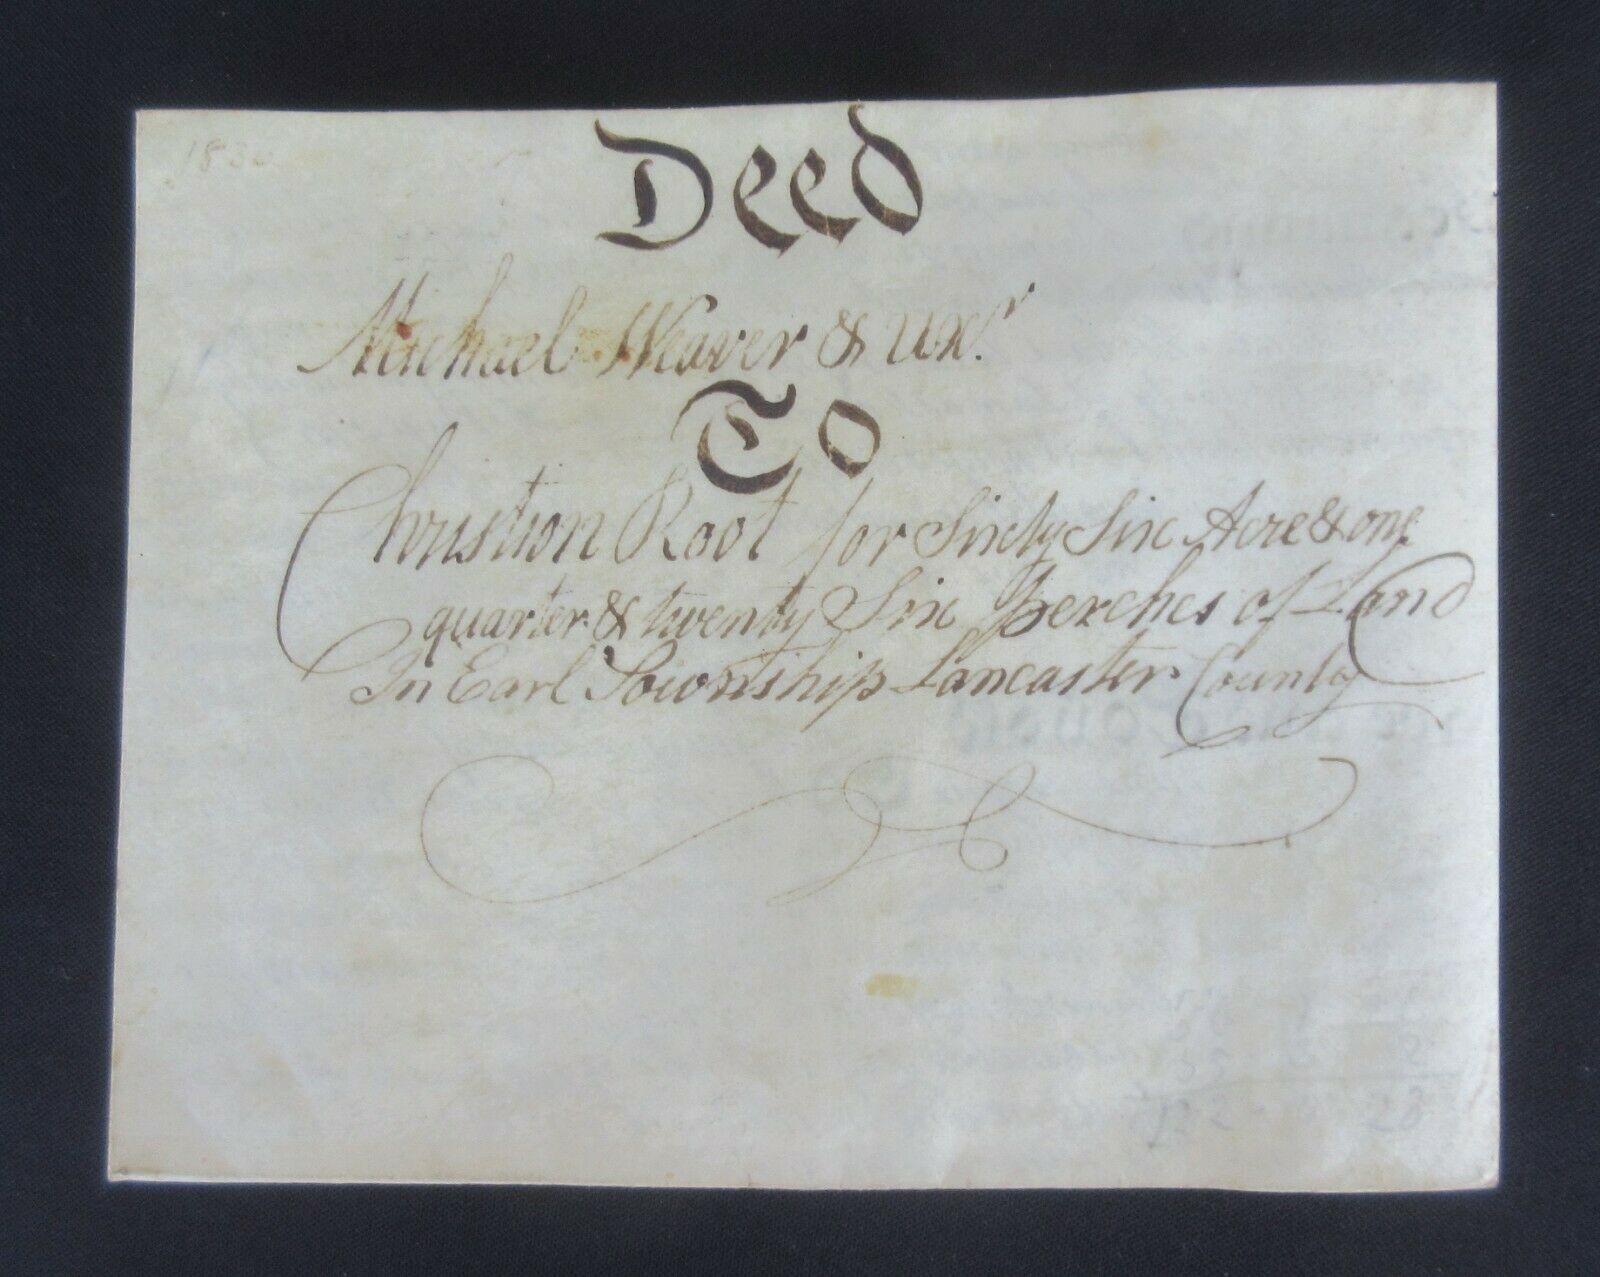 Deed
Michael Weaver & Uxr.
To
Christian Root for Sixty Six Acre & one
quarter & twenty Six Perches of Land
In Earl Township Lancaster County
23